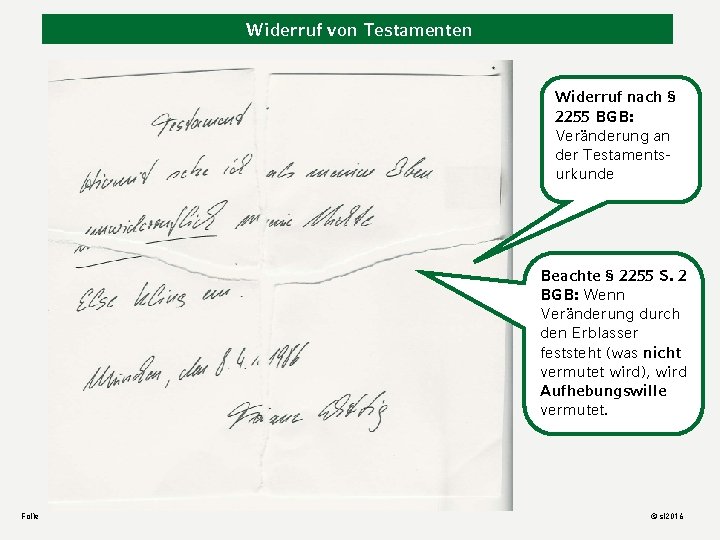 Widerruf von Testamenten
Testament
Hiermit setze ich als meinen Erben
unwiderruflich meine Nichte
Else Kling ein.
München, den 8.4.1986
Franz Wittig
Widerruf nach §
2255 BGB:
Veränderung an
der Testaments-
urkunde
Beachte § 2255 S. 2
BGB: Wenn
Veränderung durch
den Erblasser
feststeht (was nicht
vermutet wird), wird
Aufhebungswille
vermutet.
Folie
© sl2016